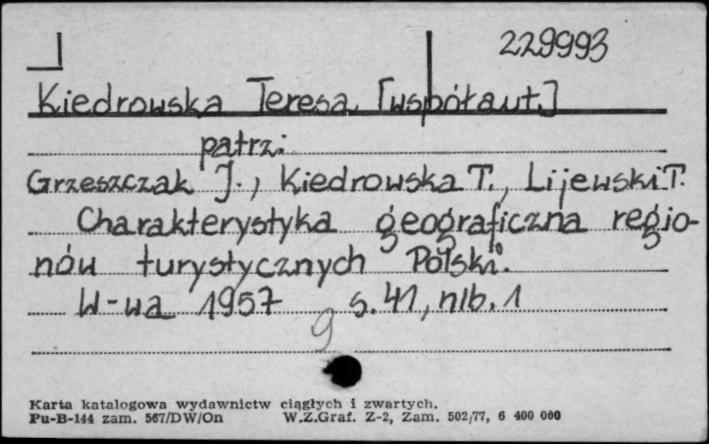 229993
Kiedrowska Teresa [współaut.]
patrz:
Grzeszczak J., Kiedrowska T., Lijewski T.
Charakterystyka geograficzna regio-
nów turystycznych Polski.
W-wa 1957 s. 41, nlb. 1
9
Karta katalogowa wydawnictw ciągłych i zwartych.
Pu-B-144 zam. 567/DW/On W.Z.Graf. Z-2, Zam. 502/77, 6 400 000